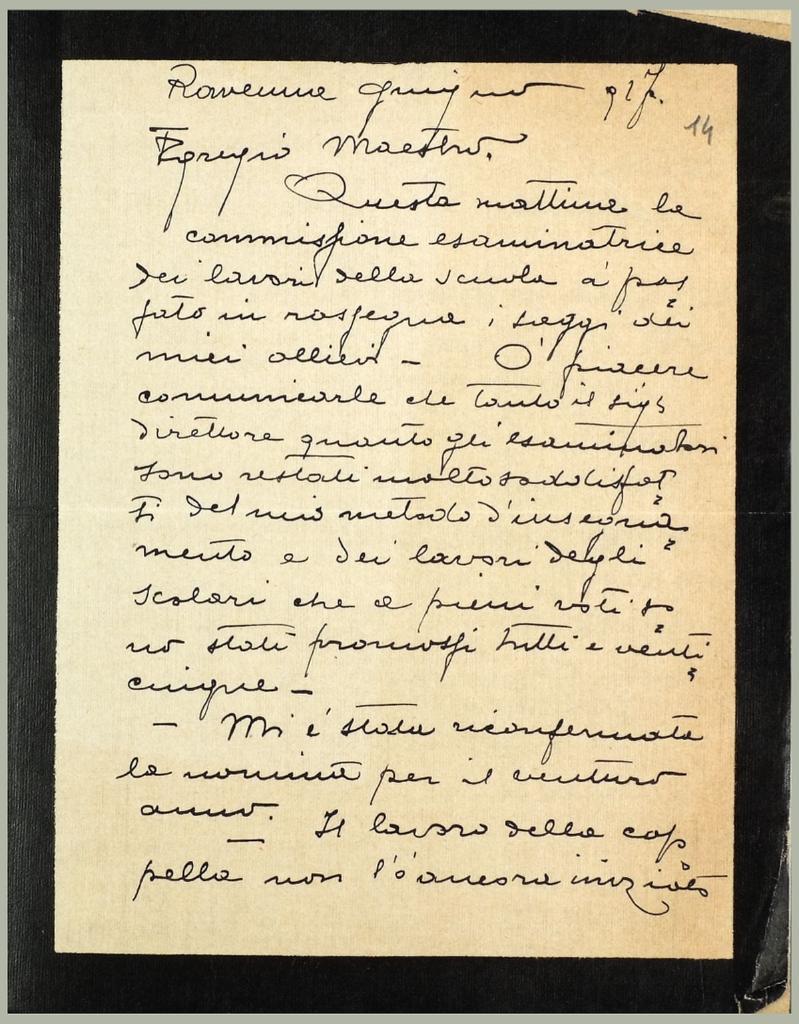 Ravenna Giugno 917.
14
Egregio Maestro.
Questa mattina la
commissione esaminatrice
dei lavori della scuola à pas
sato in rassegna i saggi dei
miei allievi - Ò piacere
comunicarle che tanto il sigr
direttore quanto gli esaminatori
sono restati molto soddisfat
ti del mio metodo d'insegna
mento e dei lavori degli
scolari che a pieni voti so
no stati promossi tutti e venti
cinque -
- Mi è stata riconfermata
la nomina per il venturo
anno.
- Il lavoro della cap
pella non l'ò ancora iniziato